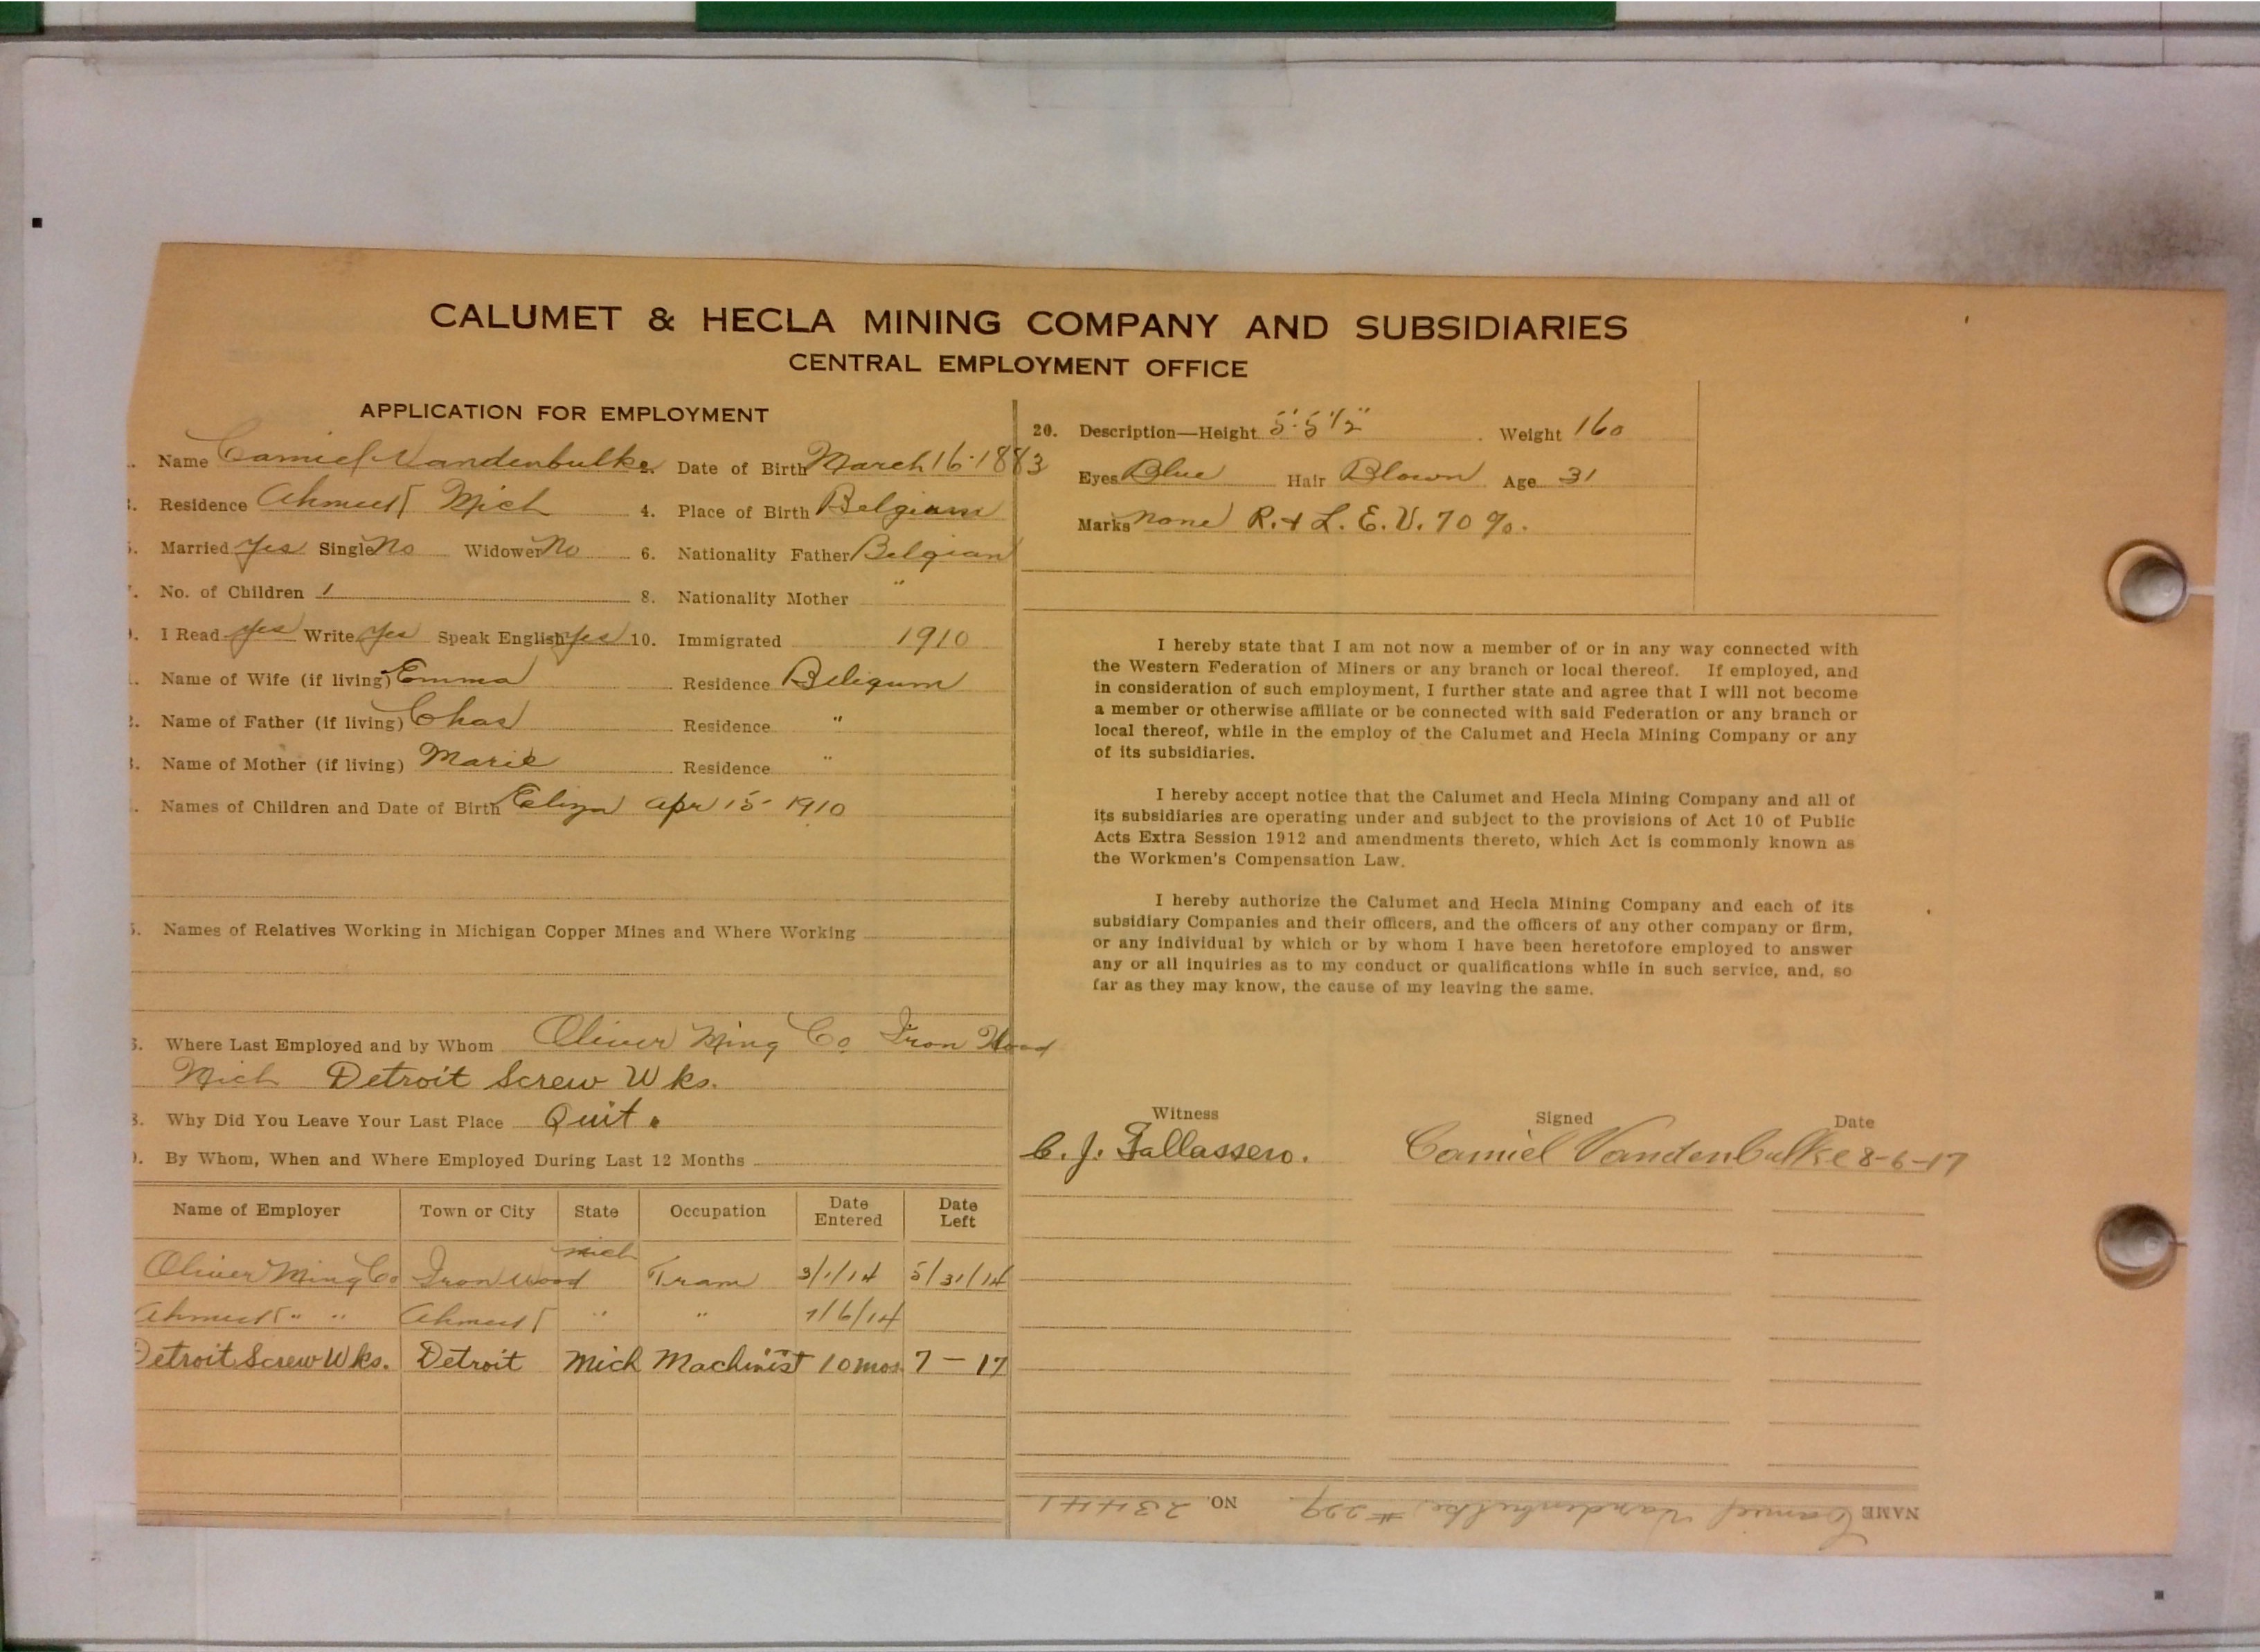 CALUMET & HECLA MINING COMPANY AND SUBSIDIARIES
CENTRAL EMPLOYMENT OFFICE
APPLICATION FOR EMPLOYMENT
Name Camiel Vandenbulke 2. Date of Birth March 16-1883
Residence Ahmeek Mich 4. Place of Birth Belgium
Married Yes Single No Widower No 6. Nationality Father Belgian
No. of Children 1 8. Nationality Mother "
I Read yes Write Yes Speak English Yes 10. Immigrated 1910
Name of Wife (if living) Emma Residence Beligum
Name of Father (if living) Chas Residence "
Name of Mother (if living) Marie Residence "
Names of Children and Date of Birth Eliza Apr 15-1910
Names of Relatives Working in Michigan Copper Mines and Where Working
Where Last Employed and by Whom Oliver Ming Co Iron Wood
Mich Detroit Screw Wks.
Why Did You Leave Your Last Place Quit.
By Whom, When and Where Employed During Last 12 Months
Name of Employer Town or City State Occupation Date Entered Date Left
Oliver Ming Co Iron Wood Mich Tram 3/1/14 5/31/14
Ahmeek " " Ahmeek " " 7/6/14
Detroit Screw Wks. Detroit Mich Machinist 10 mos. 7-17
20. Description—Height 5'-5 1/2" Weight 160
Eyes Blue Hair Blown Age 31
Marks None R. & L. E. V. 70 %.
I hereby state that I am not now a member of or in any way connected with
the Western Federation of Miners or any branch or local thereof. If employed, and
in consideration of such employment, I further state and agree that I will not become
a member or otherwise affiliate or be connected with said Federation or any branch or
local thereof, while in the employ of the Calumet and Hecla Mining Company or any
of its subsidiaries.
I hereby accept notice that the Calumet and Hecla Mining Company and all of
its subsidiaries are operating under and subject to the provisions of Act 10 of Public
Acts Extra Session 1912 and amendments thereto, which Act is commonly known as
the Workmen's Compensation Law.
I hereby authorize the Calumet and Hecla Mining Company and each of its
subsidiary Companies and their officers, and the officers of any other company or firm,
or any individual by which or by whom I have been heretofore employed to answer
any or all inquiries as to my conduct or qualifications while in such service, and, so
far as they may know, the cause of my leaving the same.
Witness Signed Date
C. J. Fallassero. Camiel Vandenbulke 8-6-17
NAME Camiel Vandenbulke, #229. NO. 23441